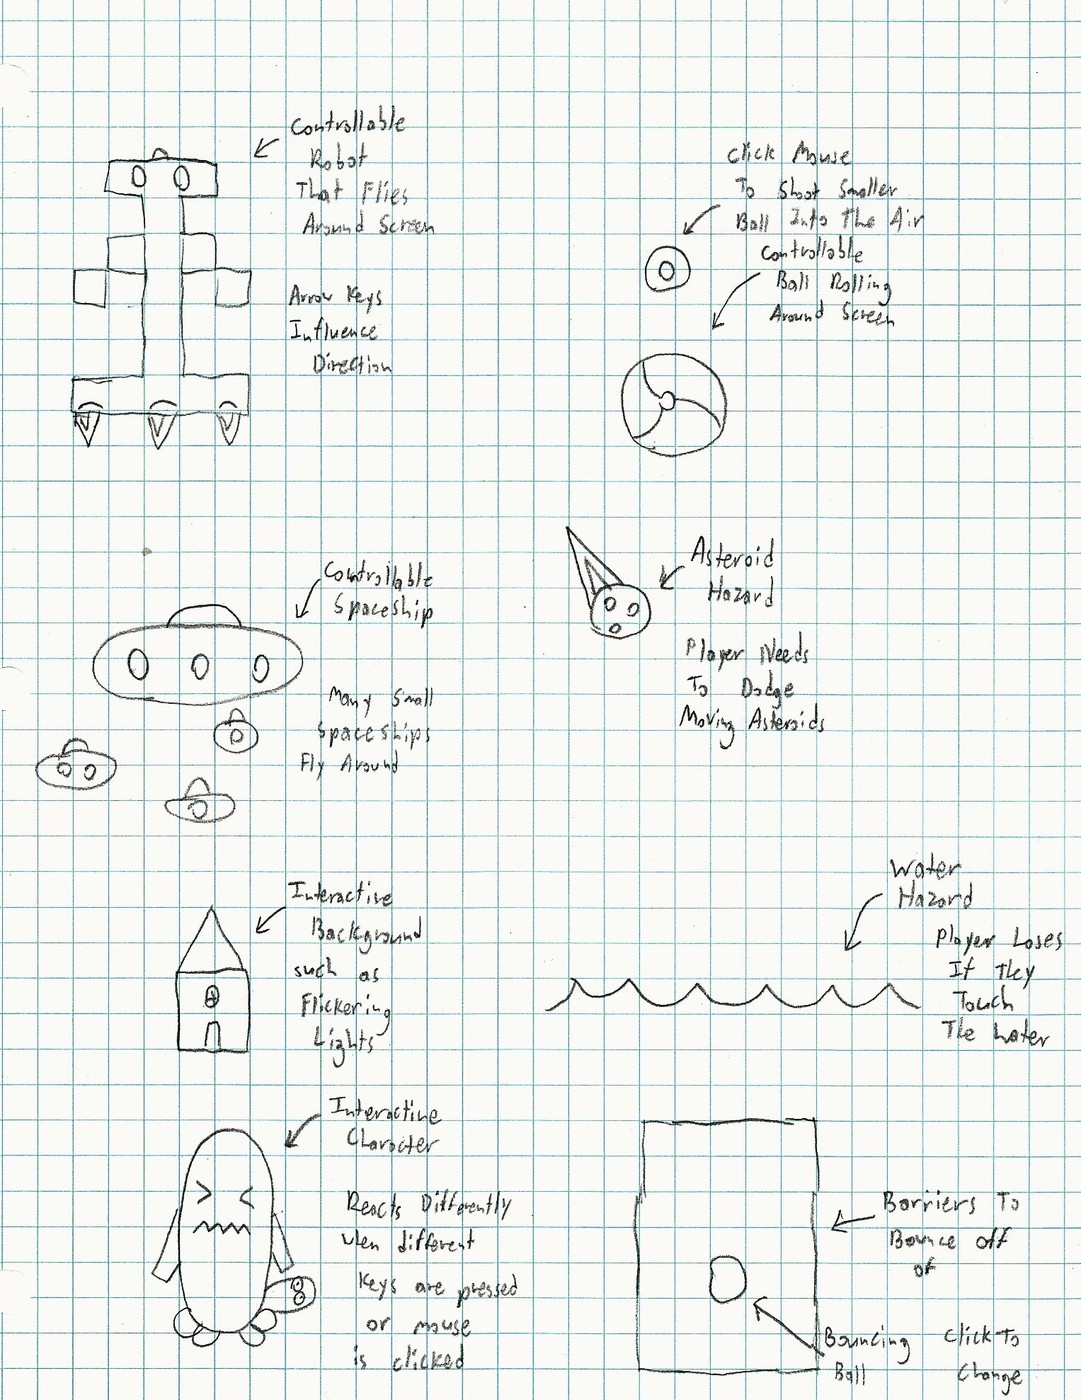 Controllable
Robot
That Flies
Around Screen
Arrow Keys
Influence
Direction
Click Mouse
To Shoot Smaller
Ball Into The Air
Controllable
Ball Rolling
Around Screen
Controllable
Spaceship
Many Small
Spaceships
Fly Around
Asteroid
Hazard
Player Needs
To Dodge
Moving Asteroids
Interactive
Background
such as
Flickering
Lights
Water
Hazard
Player Loses
If They
Touch
The Water
Interactive
Character
Reacts Differently
when different
Keys are pressed
or mouse
is clicked
Barriers To
Bounce off
of
Bouncing
Ball
Click To
Change